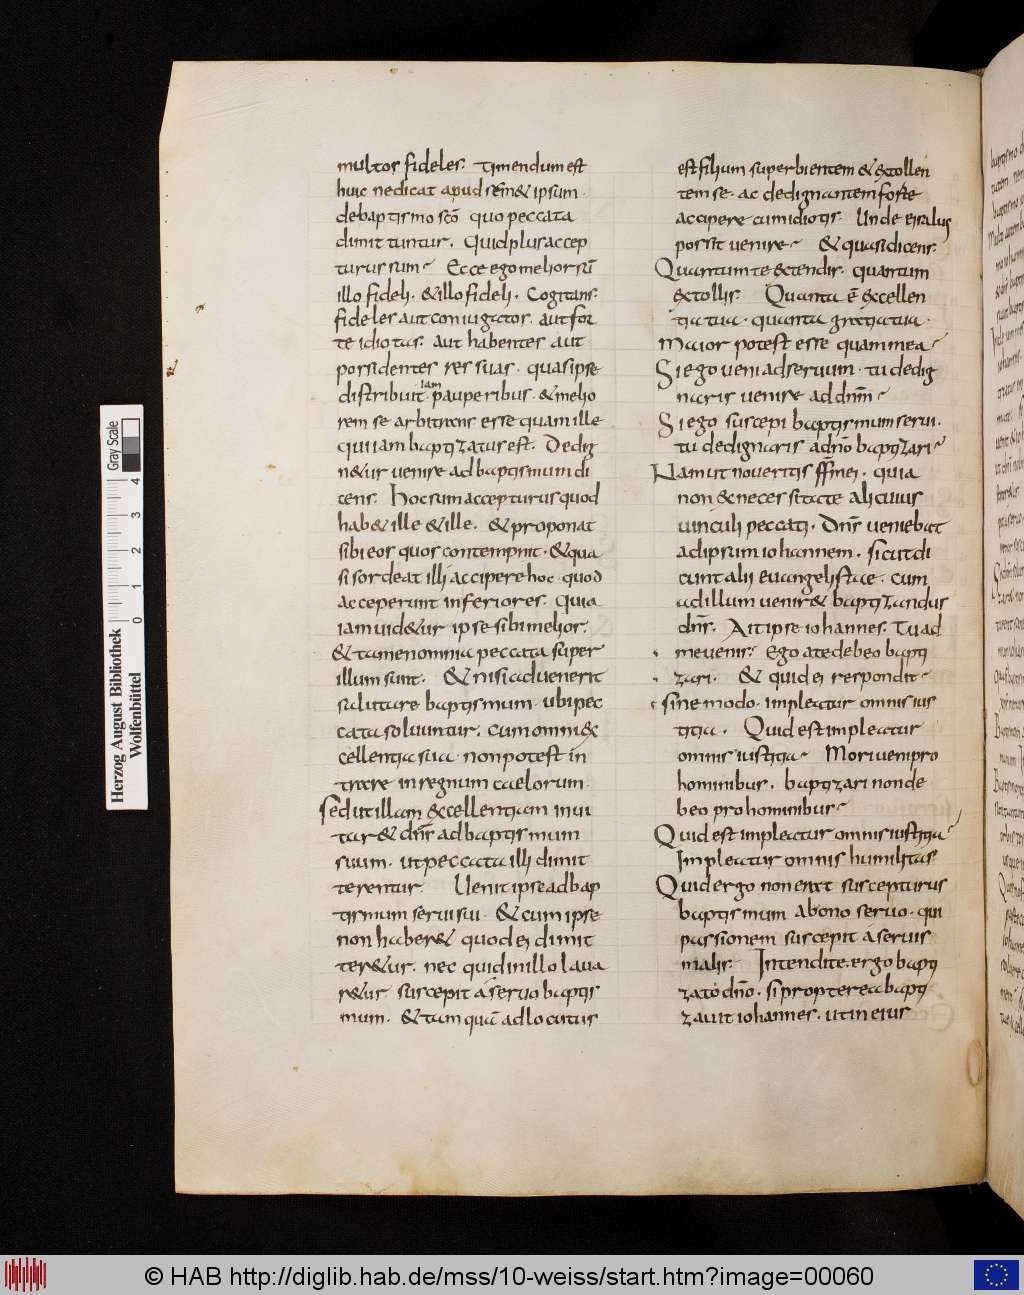 multos fideles. Timendum est
huic ne dicat apud sem& ipsum.
debaptismo sc̄o quo peccata
dimittuntur. Quid plus accep
turus sum? Ecce ego melior sū
illo fideli. &illo fideli. Cogitans.
fideles aut coniugatos. aut for
te idiotas. aut habentes aut
possidentes res suas. quas ipse
distribuit iam pauperibus. &melio
rem se arbitrans esse quam ille
qui iam baptizatus est. Dedig
n&ur uenire ad baptismum di
cens. Hoc sum accepturus quod
hab& ille &ille. & proponat
sibi eos quos contempnit. &qua
si sordeat illi accipere hoc. quod
acceperunt inferiores. quia
iam uid&ur ipse sibi melior.
& tamen omnia peccata super
illum sunt. & nisi aduenerit
salutare baptismum. ubi pec
cata soluuntur. cum omni &c
cellentia sua non potest in
trare in regnum caelorum.
Sed ut illam &ccellentiam inui
tar& dn̄s ad baptismum
suum. ut peccata illi dimit
terentur. Uenit ipse ad bap
tismum serui sui. & cum ipse
non haber& quod ei dimit
ter&ur. nec quid in illo laua
r&ur suscepit a seruo baptis
mum. & tamquā adlocutus
est filium superbientem &&tollen
tem se. ac dedignantem forte
accipere cum idiotis. Unde ei salus
possit uenire? & quasi dicens.
Quantum te &tendis. quantum
&tollis. Quanta ē &ccellen
tia tua. quanta gratia tua.
Maior potest esse quam mea?
Si ego ueni ad seruum. tu dedig
naris uenire ad dn̄m?
Si ego suscepi baptismum serui.
tu dedignaris a dn̄o baptizari?
Nam ut noueritis fr̄s mei. quia
non & necessitate alicuius
uinculi peccati. Dn̄s ueniebat
ad ipsum iohannem. sicut di
cunt alii euangelistae. cum
ad illum uenir& baptizandus
dn̄s. Ait ipse iohannes. Tu ad
me uenis? Ego a te debeo bapti
zari. & quid ei respondit?
sine modo. impleatur omnis ius
titia. Quid est impleatur
omnis iustitia? Mori ueni pro
hominibus. baptizari non de
beo pro hominibus?
Quid est impleatur omnis iustitia?
Impleatur omnis humilitas
Quid ergo non erat suscepturus
baptismum a bono seruo. qui
passionem suscepit a seruis
malis. Intendite. ergo bapti
zato dn̄o. si propterea bapti
zauit iohannes. ut in eius
Herzog August Bibliothek
Wolfenbüttel
Gray Scale
0 1 2 3 4
© HAB http://diglib.hab.de/mss/10-weiss/start.htm?image=00060